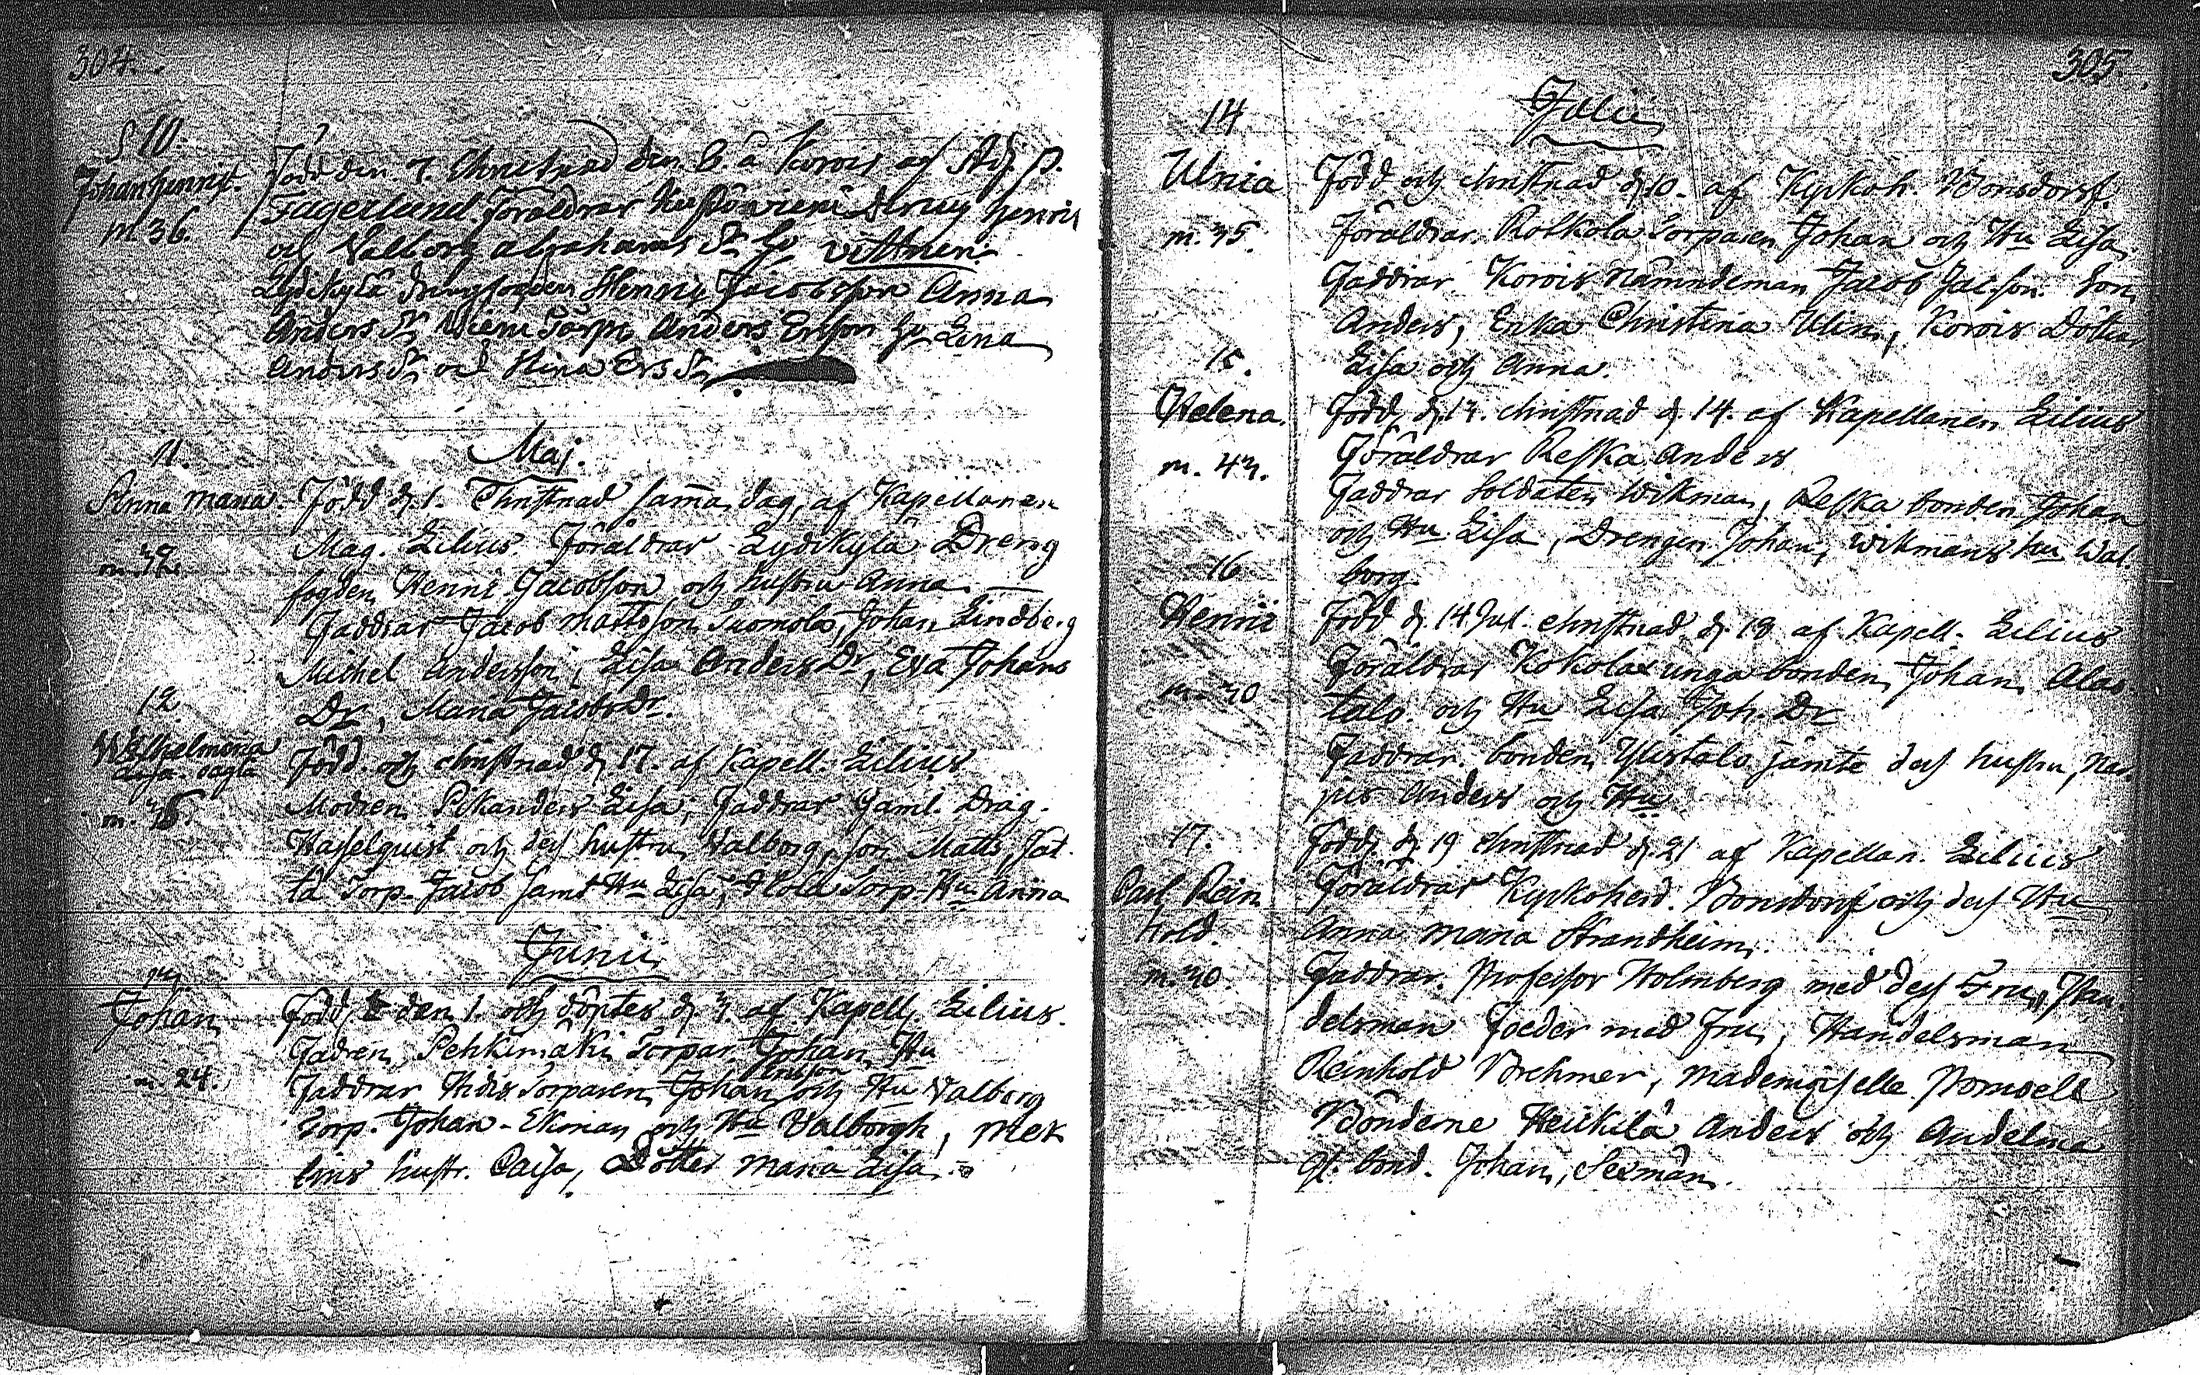 304.
§ 10.
Johan henric.
m. 36.
Född den 7. Christnad den 8. å Korois af Adj. P.
Fagerlund. Föräldrar Dräng henric
och Valborg abrahams Dr. Vittnen.
Lydikylä drängfogden Henric Jacobsson Anna
Anders Dr. Niemi Torp. Anders Ersson Lena
Anders Dr. och Stina Ers Dr.
Maj.
11.
Anna maria.
m. 32.
Född d. 1. Christnad samma dag, af Kapellanen
Mag. Lilius. Föräldrar Lydikylä Dreng
fogden Henric Jacobsson och hustru Anna.
Faddrar Jacob mattsson Suomola, Johan Lindberg
Michel Andersson, Lisa Anders Dr, Eva Johans
Dr, Maria Jacobs Dr.
12.
Wilhelmina
m.
Född och christnad d. 17. af Kapell. Lilius
Modren Pikanders Lisa; Faddrar Gaml. Drag.
Hasselquist och dess hustru Valborg, son Matts,
Torp. Jacob samt Hu Lisa, Torp. Hu Anna
Junii
13.
Johan
m. 24.
Född den 1. och döptes d. 3. af Kapell. Lilius.
Fadren Pehkimäki Torpar. Johan Hu
Faddrar Hidis Torparen Johan Ersson och Hu Valborg
Torp. Johan Ekman och Hu Valborgh, Mek
lins hustr. Caisa, Dotter Maria Lisa.
305.
Julii
14
Ulrica
m. 35.
Född och christnad d. 10. af Kyrkoh. Bonsdorff.
Föräldrar Rolkola Torparen Johan och Hu Lisa
Faddrar Korois nämndeman Jacob Jac.son. Son
Anders, Erika Christina Ulin, Korois Döttrar
Lisa och Anna.
15.
Helena.
m. 43.
Född d. 13. christnad d. 14. af Kapellanen Lilius
Föräldrar Reska Anders
Faddrar Soldaten Wikman, Reska bonden Johan
och Hu Lisa, Drengen Johan, Wikmans hu Wal
borg.
16
Henric
m. 30
Född d. 14 Jul. christnad d. 18 af Kapell. Lilius
Föräldrar Kokola unga bonden Johan Alas
talo. och Hu Lisa Joh. Dr
Faddrar. bonden Ylistalo jämte dess hustru,
Anders och Hu.
17.
Carl Rein
hold.
m. 30.
Född d. 19 christnad d. 21 af Kapellan. Lilius
Föräldrar Kyrkoherd. Bonsdorff och dess Hu
Anna Maria Strandheim
Faddrar. Professor Holmberg med dess Fru, Han
delsman Foeder med Fru, Handelsman
Reinhold Brehmer, Mademoiselle
Bönderne Heickilä Anders och Andelma
gl. bond. Johan, Sexman.